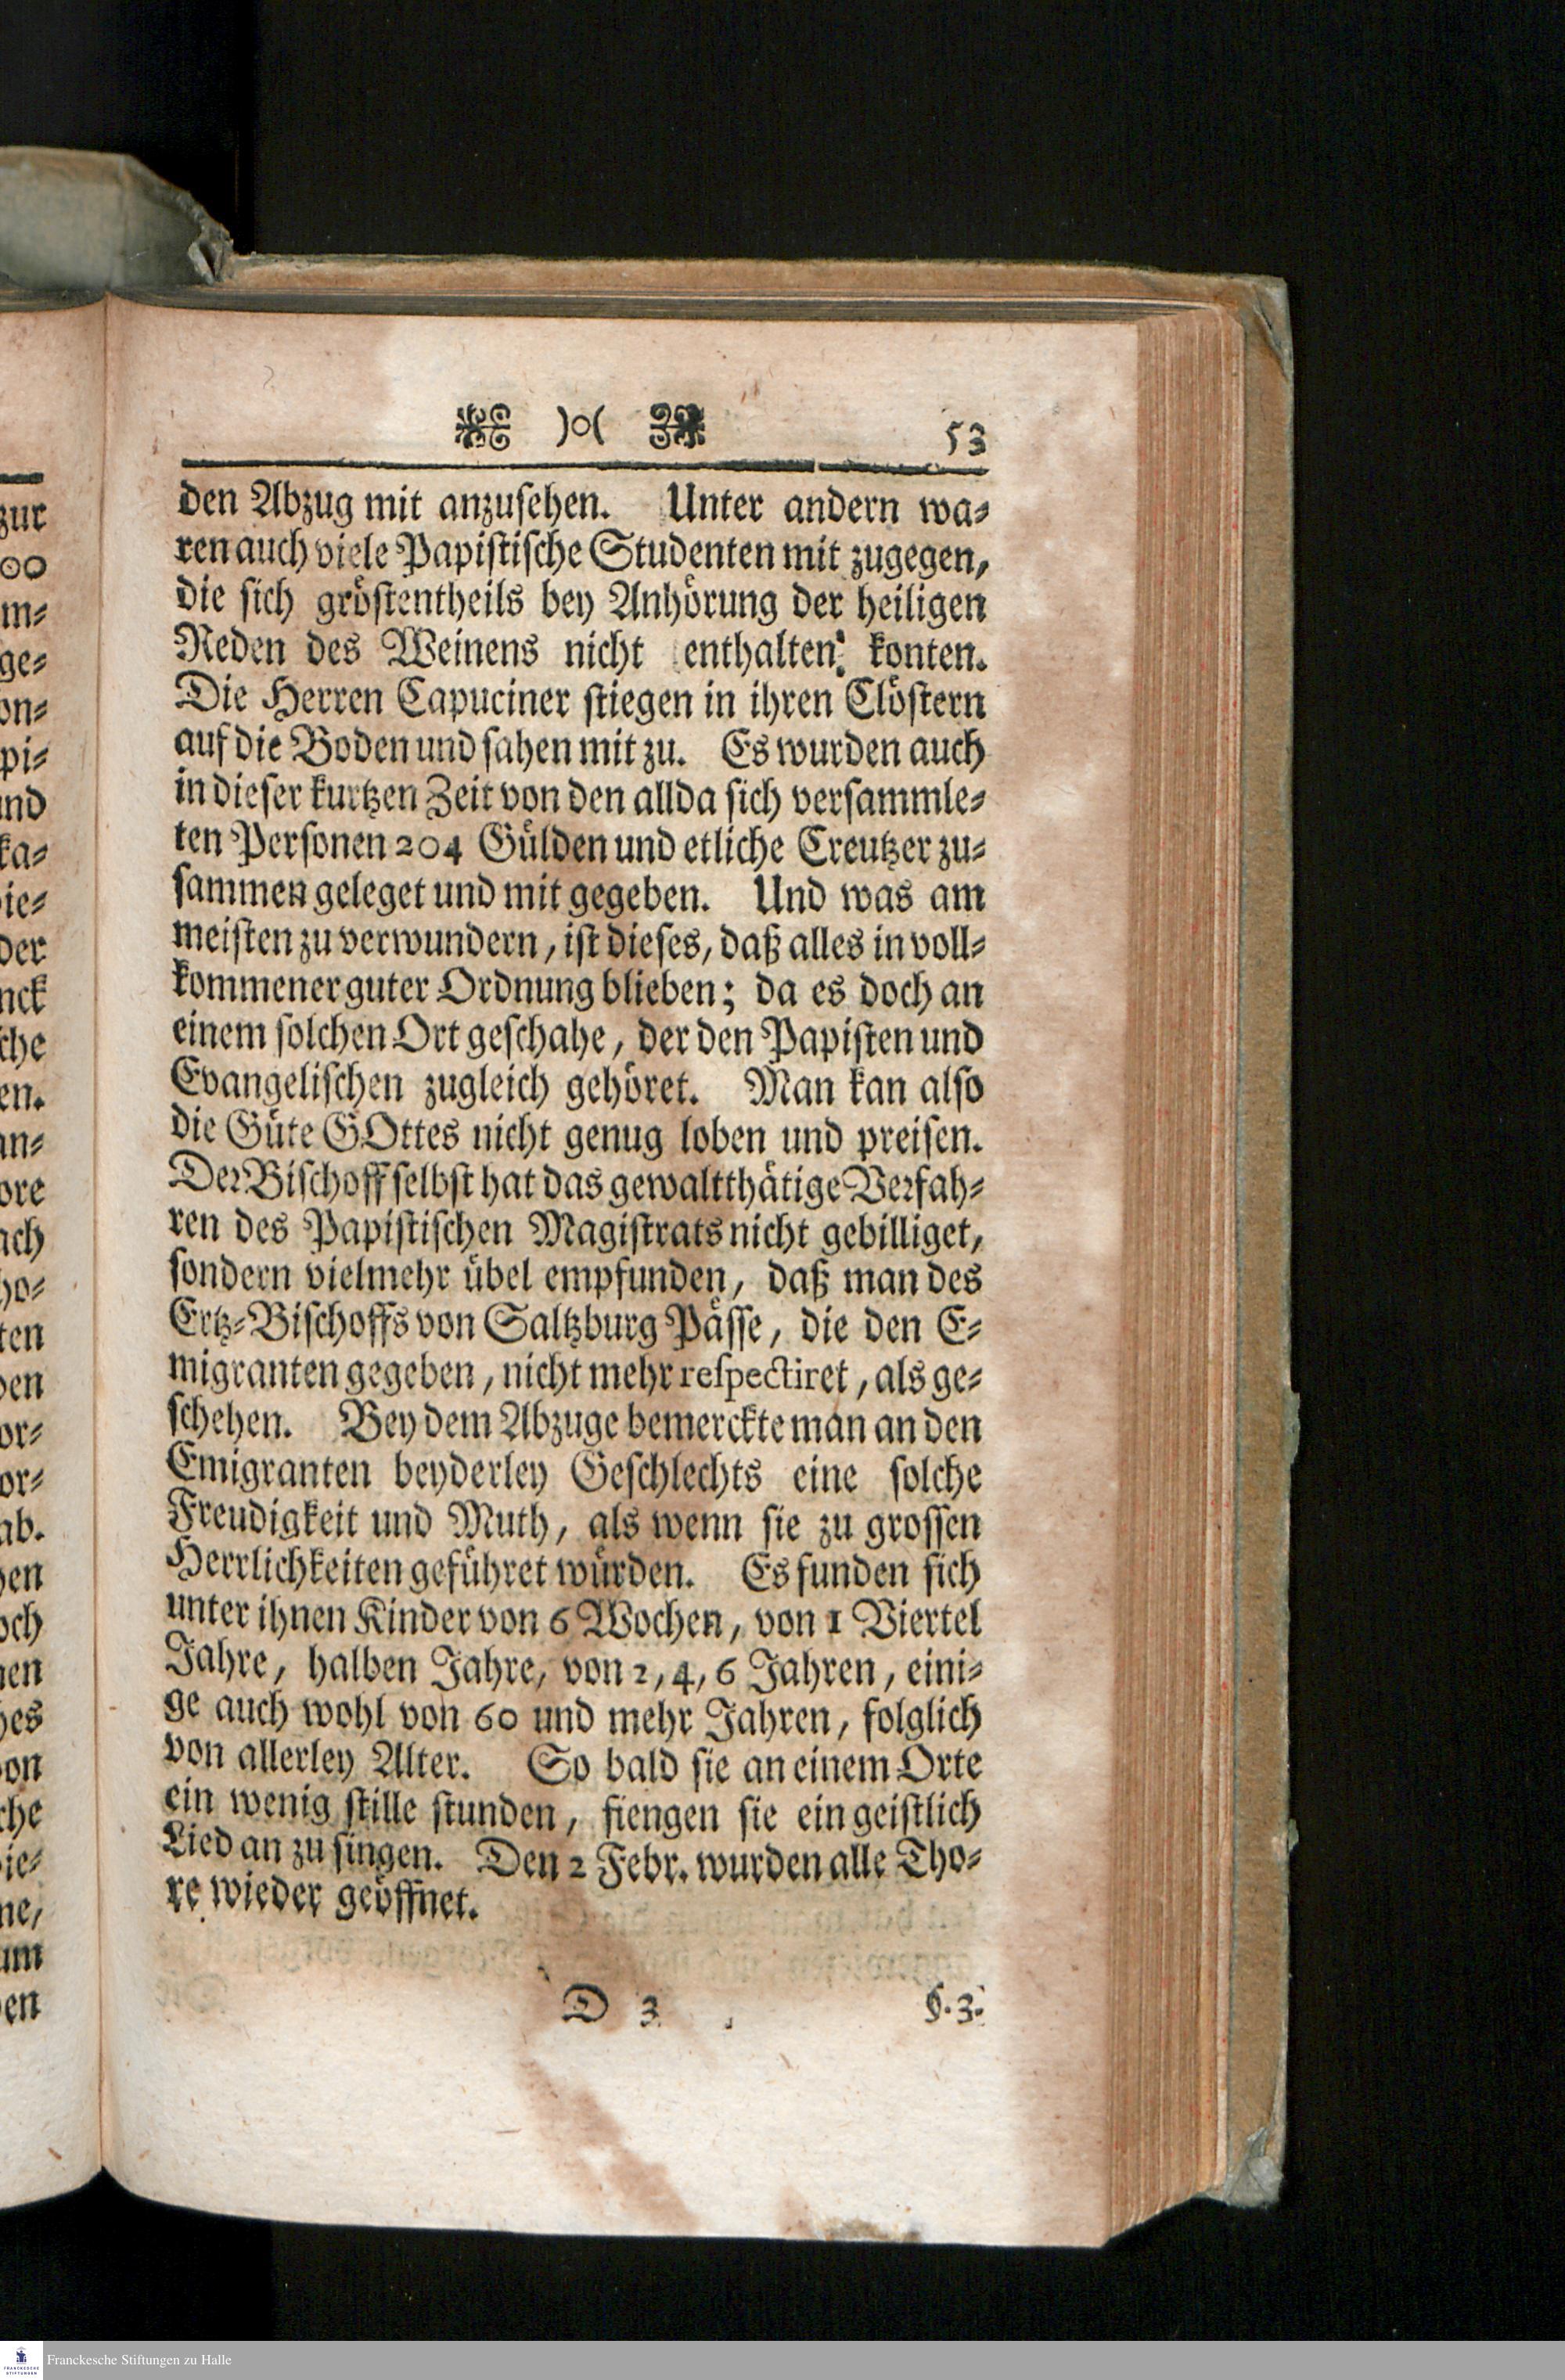 )o( 53
den Abzug mit anzusehen. Unter andern wa-
ren auch viele Papistische Studenten mit zugegen,
die sich gröstentheils bey Anhörung der heiligen
Reden des Weinens nicht enthalten konten.
Die Herren Capuciner stiegen in ihren Clöstern
auf die Boden und sahen mit zu. Es wurden auch
in dieser kurtzen Zeit von den allda sich versammle-
ten Personen 204 Gülden und etliche Creutzer zu-
sammen geleget und mit gegeben. Und was am
meisten zu verwundern, ist dieses, daß alles in voll-
kommener guter Ordnung blieben; da es doch an
einem solchen Ort geschahe, der den Papisten und
Evangelischen zugleich gehöret. Man kan also
die Güte GOttes nicht genug loben und preisen.
Der Bischoff selbst hat das gewaltthätige Verfah-
ren des Papistischen Magistrats nicht gebilliget,
sondern vielmehr übel empfunden, daß man des
Ertz-Bischoffs von Saltzburg Pässe, die den E-
migranten gegeben, nicht mehr respectiret, als ge-
schehen. Bey dem Abzuge bemerckte man an den
Emigranten beyderley Geschlechts eine solche
Freudigkeit und Muth, als wenn sie zu grossen
Herrlichkeiten geführet würden. Es funden sich
unter ihnen Kinder von 6 Wochen, von 1 Viertel
Jahre, halben Jahre, von 2, 4, 6 Jahren, eini-
ge auch wohl von 60 und mehr Jahren, folglich
von allerley Alter. So bald sie an einem Orte
ein wenig stille stunden, fiengen sie ein geistlich
Lied an zu singen. Den 2 Febr. wurden alle Tho-
re wieder geöffnet.
D 3 §. 3.
zur
m-
ge-
on-
pi-
und
ka-
ie-
der
nck
che
en.
an-
ore
ach
ho-
ten
den
or-
or-
ab.
hen
och
nen
hes
von
che
ie-
ne,
um
en
FRANCKESCHE STIFTUNGEN
Franckesche Stiftungen zu Halle